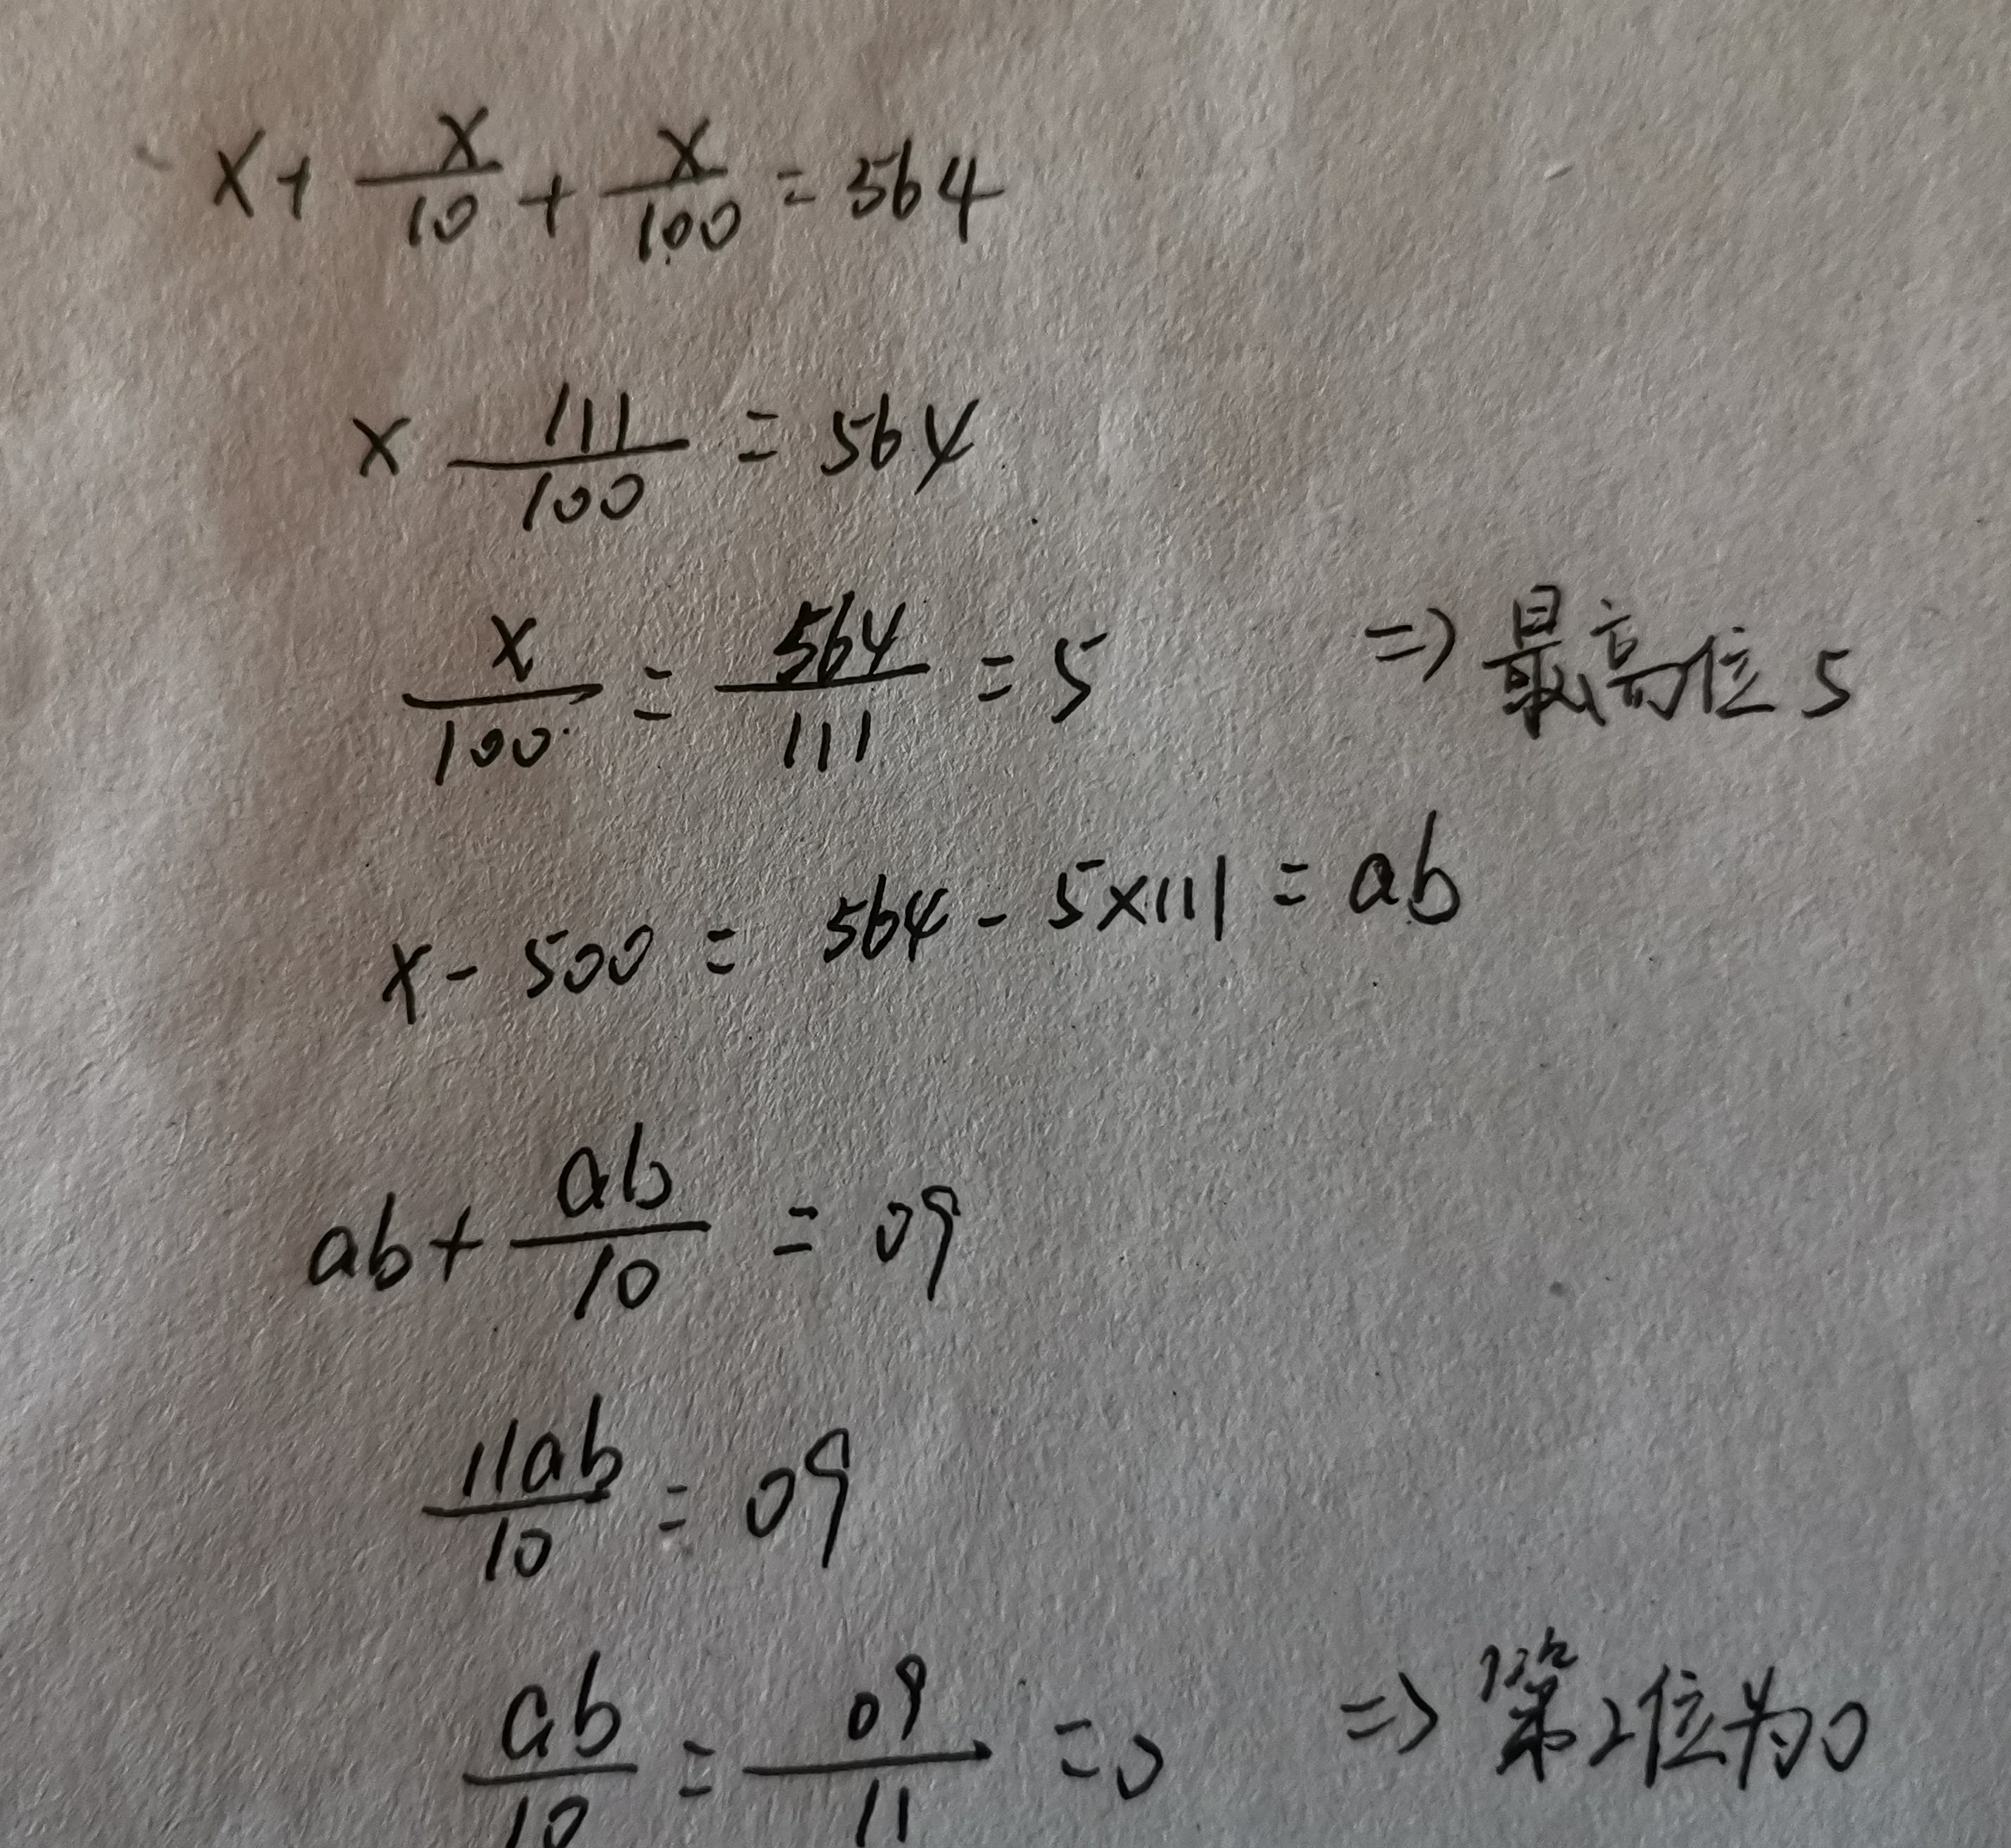 x + x/10 + x/100 = 564
x 111/100 = 564
x/100 = 564/111 = 5 => 最高位5
x - 500 = 564 - 5×111 = ab
ab + ab/10 = 09
11ab/10 = 09
ab/10 = 09/11 = 0 => 第2位为0